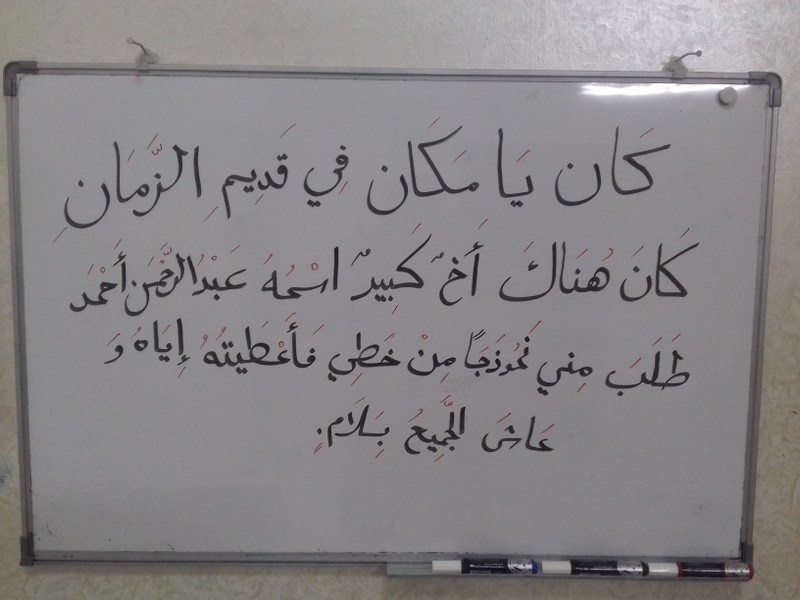 كَان يَا مَكَان فِي قَدِيمِ الزَّمَانِ
كَانَ هُنَاكَ أَخٌ كَبِيرٌ اسْمُهُ عَبْدُالرَّحْمَن أَحْمَد
طَلَبَ مِني نَمُوذَجًا مِنْ خَطِي فَأَعْطَيتُهُ إِيَاهُ وَ
عَاشَ الجَّمِيعُ بِسَلَامٍ.